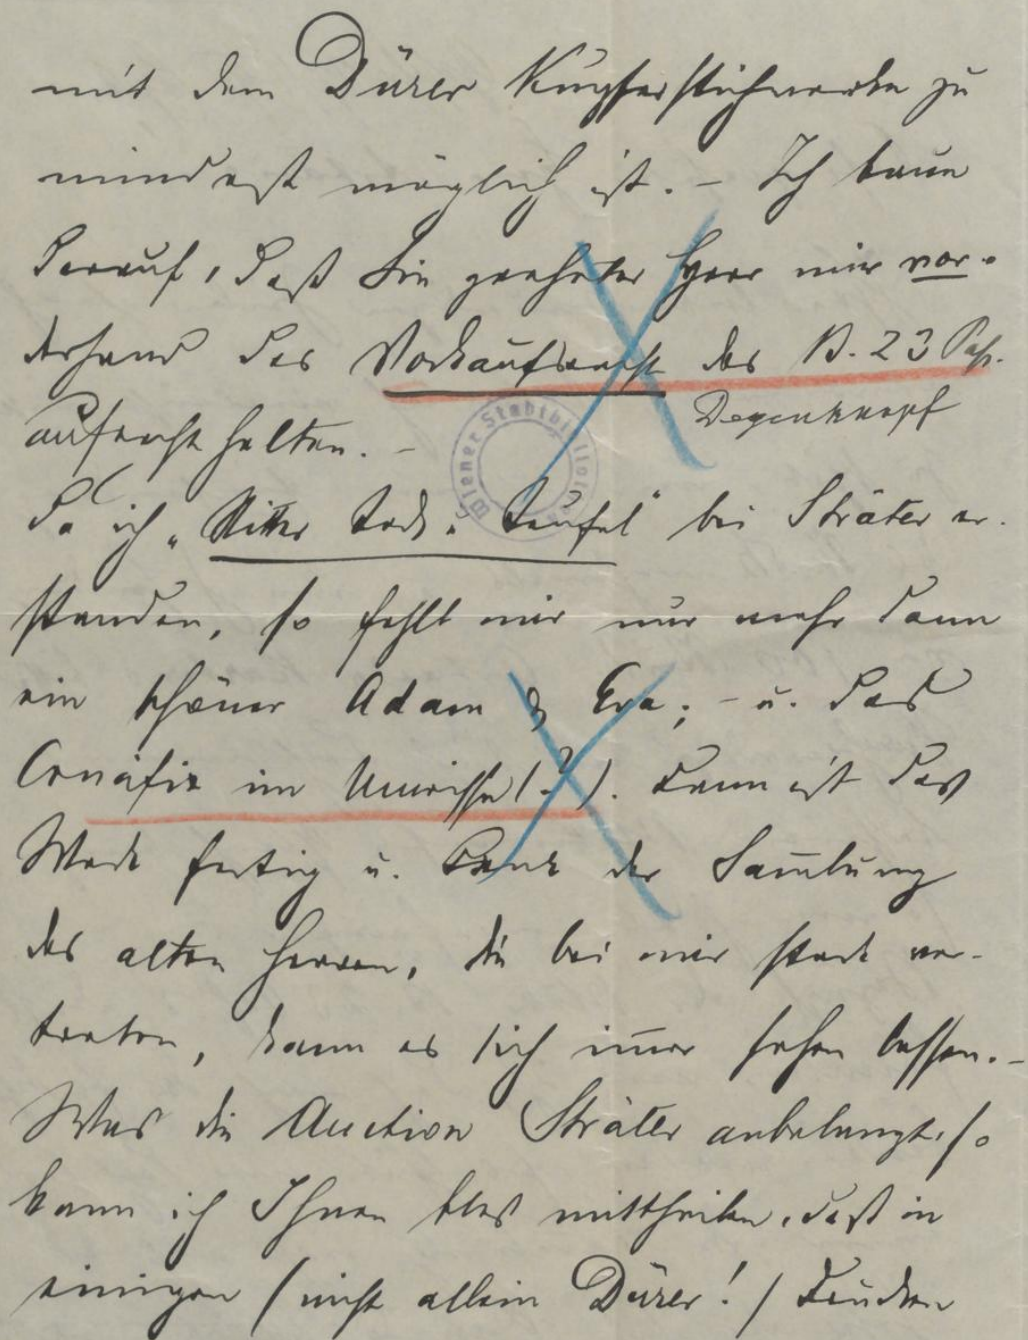 mit dem Dürer Kupferstichwerke zu
mindest möglich ist. – Ich baue
darauf, daß Sie geehrter Herr mir vor-
derhand das Vorkaufsrecht des B. 23
Degenknopf
aufrecht halten. –
Da ich „Ritter Tod u. Teufel" bei Sträter er-
standen, so fehlt mir nur mehr dann
ein schöner Adam & Eva; – u. das
Crucifix im Umrisse (?). Dann ist das
Werk fertig u. Dank der Sam̅lung
des alten Herren, die bei mir stark ver-
treten, kann es sich im̅er sehen lassen. –
Was die Auction Sträter anbelangt, so
kann ich Ihnen blos mittheilen, daß in
einigen (nicht allein Dürer!)
Wiener Stadtbibliothek